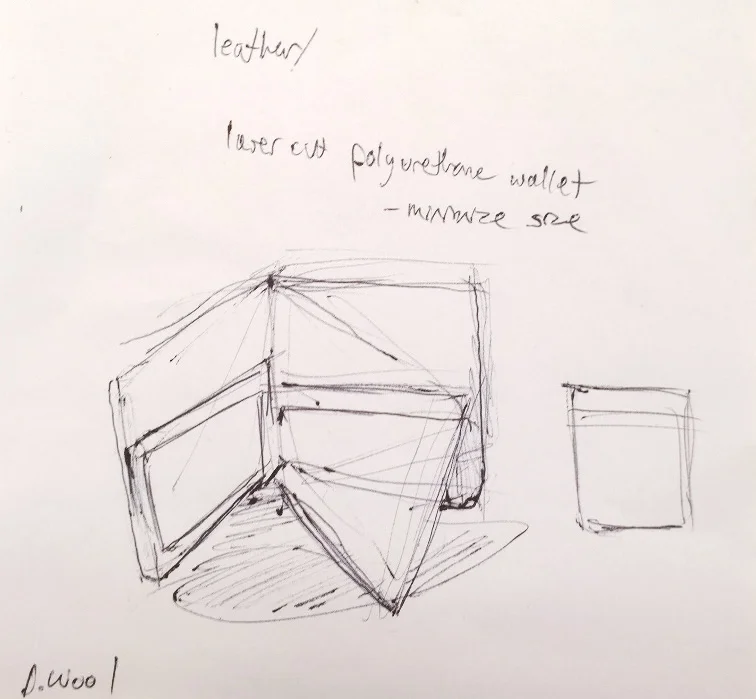 leather/
laser cut polyurethane wallet
- minimize size
D.Wool